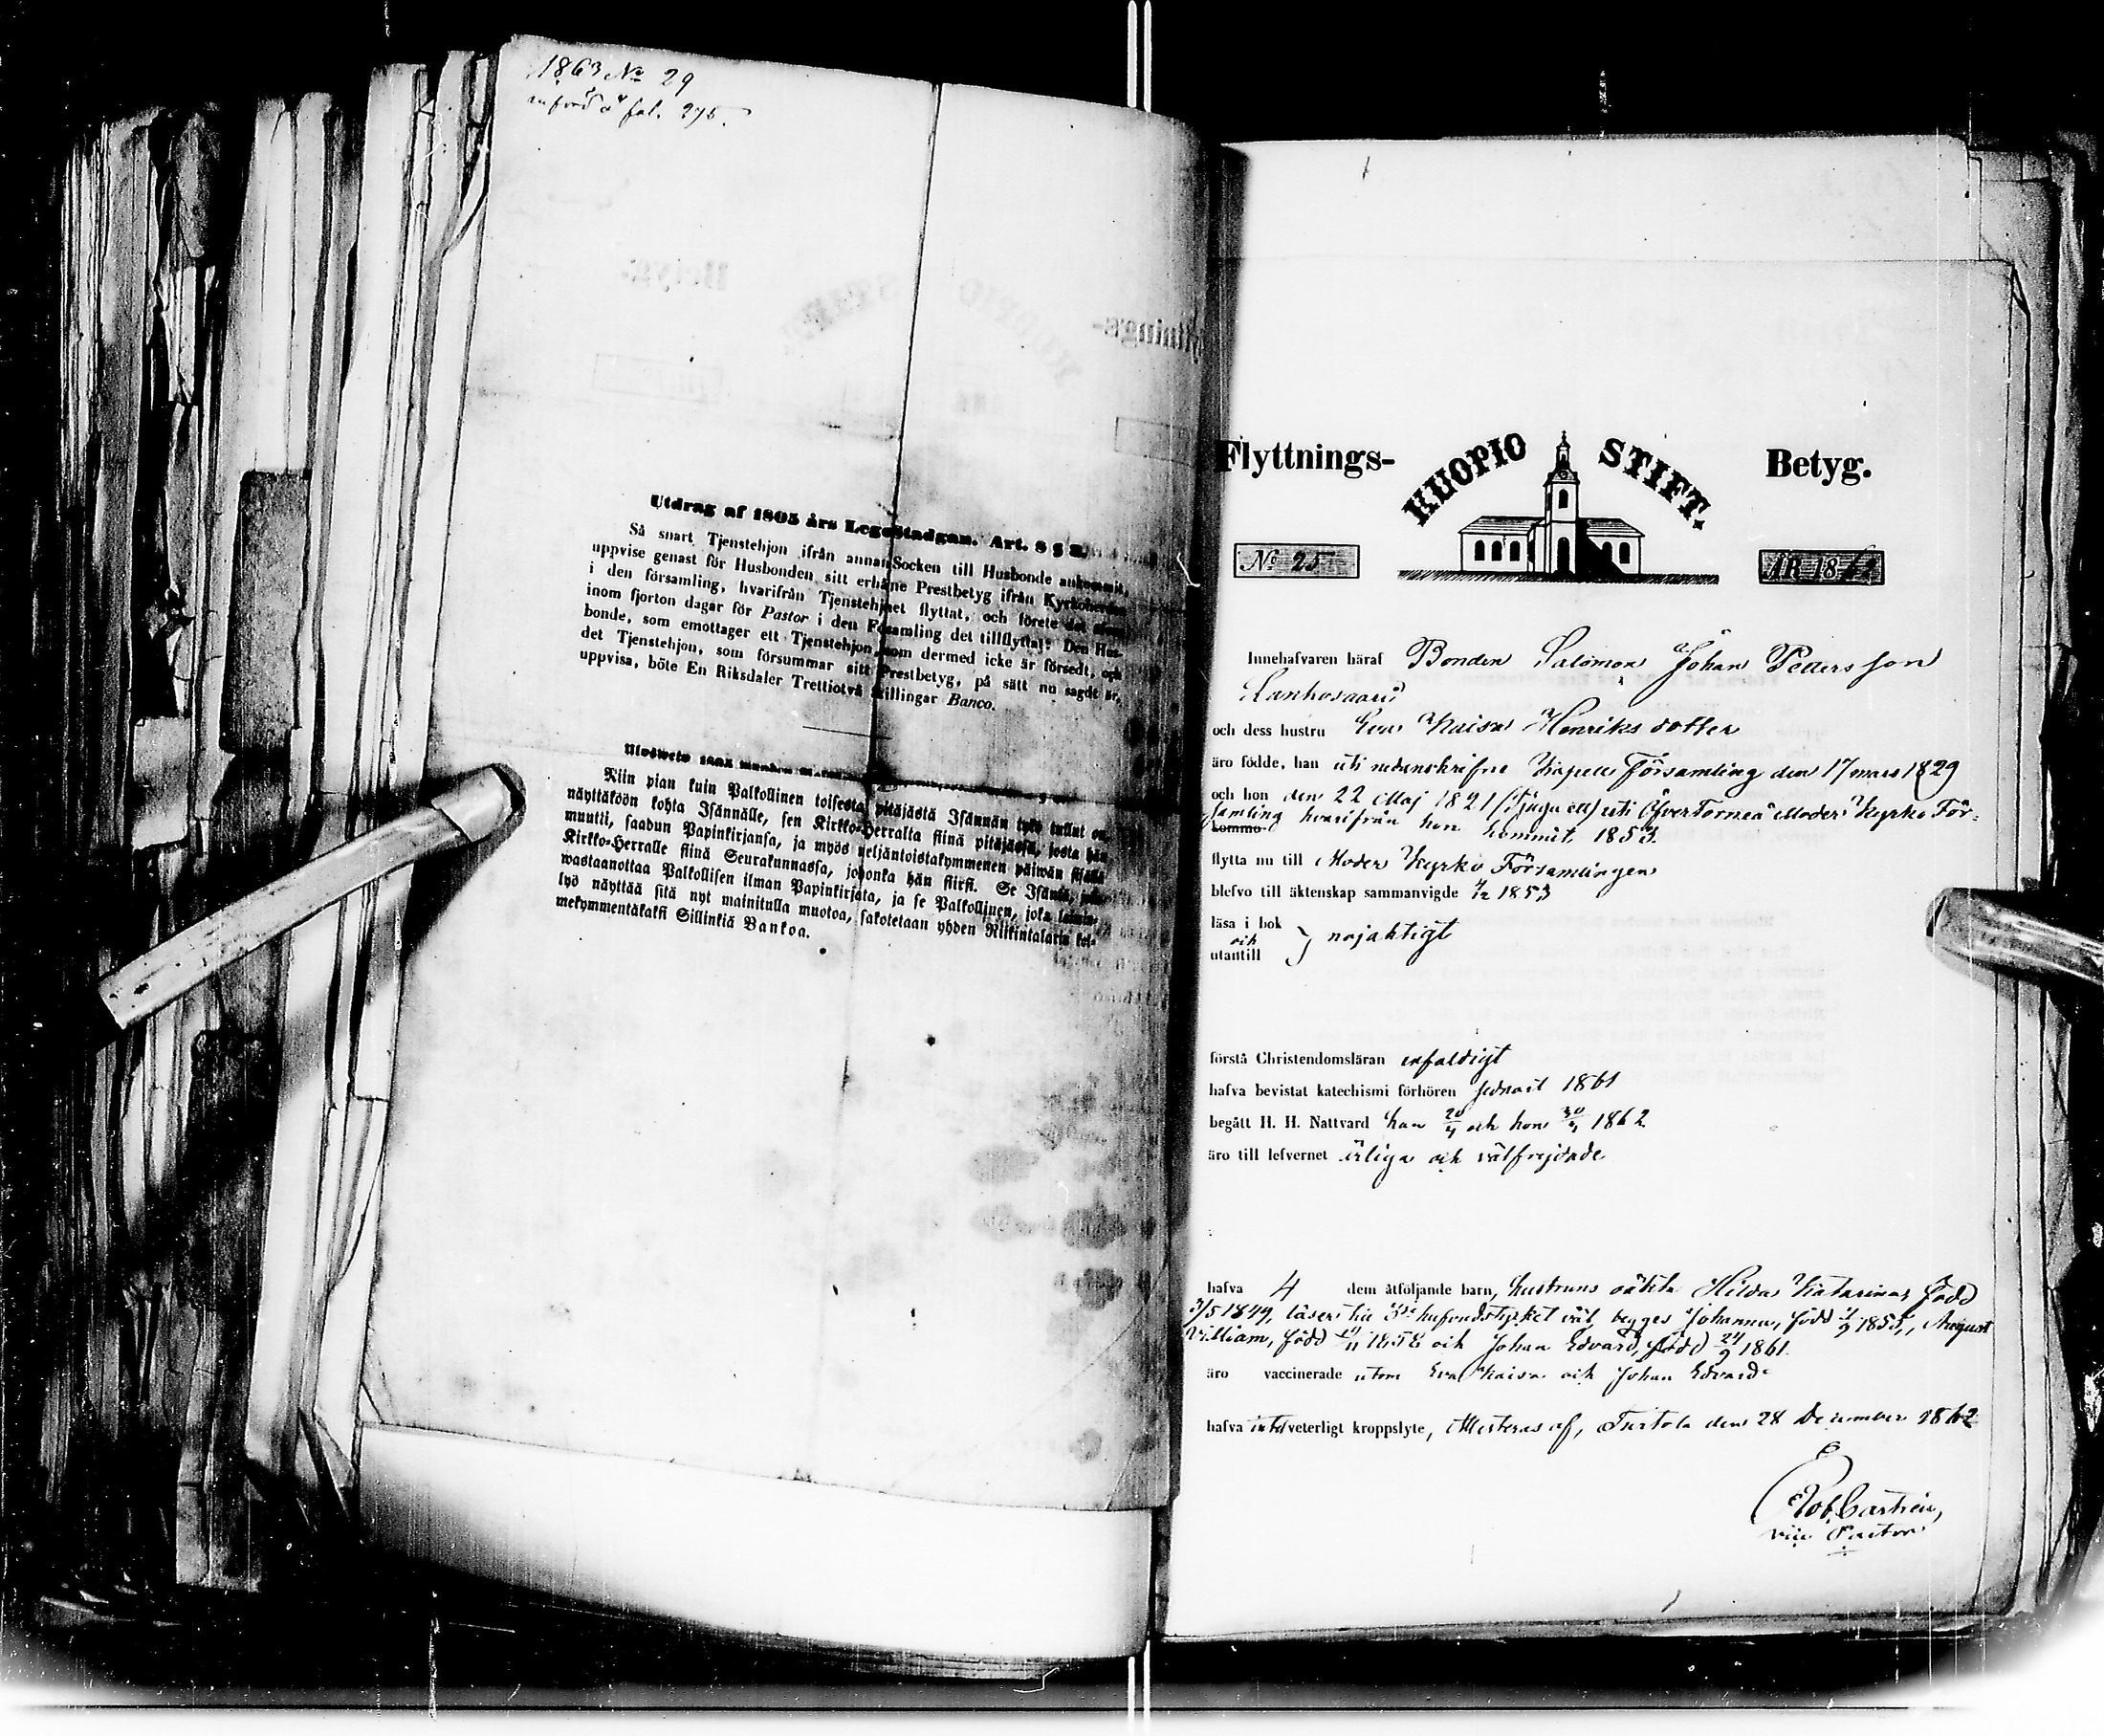 1863 No 29
införd å fol. 275.
Utdrag af 1805 års Legostadgan. Art. 8 § 2.
Så snart Tjenstehjon ifrån annan Socken till Husbonde ankommit,
uppvise genast för Husbonden sitt erhållne Prestbetyg ifrån Kyrkoherden
i den församling, hvarifrån Tjenstehjonet flyttat, och förete det
inom fjorton dagar för Pastor i den Församling det tillflyttat: Den Hus-
bonde, som emottager ett Tjenstehjon, som dermed icke är försedt, och
det Tjenstehjon, som försummar sitt Prestbetyg, på sätt nu sagdt är,
uppvisa, böte En Riksdaler Trettiotvå skillingar Banco.
Niin pian kuin Palkollinen toisesta pitäjästä Isännän tykö tullut on,
näyttäköön kohta Isännälle, sen Kirkko-Herralta siinä pitäjässä, josta hän
muutti, saadun Papinkirjansa, ja myös neljäntoistakymmenen päiwän sisällä
Kirkko-Herralle siinä Seurakunnassa, johonka hän siirsi. Se Isäntä, joka
wastaanottaa Palkollisen ilman Papinkirjata, ja se Palkollinen, joka laimin-
lyö näyttää sitä nyt mainitulla muotoa, sakotetaan yhden Riikintalarin kol-
mekymmentäkaksi Sillinkiä Bankoa.
Flyttnings- KUOPIO STIFT. Betyg.
No 25 ÅR 1862
Innehafvaren häraf Bonden Salomon Johan Pettersson
Lanhosaari
och dess hustru Eva Kaisa Henriksdotter
äro födde, han uti nedanskrifne Kapell Församling den 17 mars 1829
och hon den 22 Maj 1821 (Tjugu ett) uti Öfver Torneå Moder Kyrko För-
samling hvarifrån hon kommit 1853.
kommo
flytta nu till Moder Kyrko Församlingen
blefvo till äktenskap sammanvigde 4/2 1853
läsa i bok
och } nöjaktigt
utantill
förstå Christendomsläran enfaldigt
hafva bevistat katechismi förhören sednast 1861
begått H. H. Nattvard han 20/4 och hon 30/4 1862
äro till lefvernet ärliga och välfrejdade
hafva 4 dem åtföljande barn, hustruns oäkta Hilda Katarina, född
3/5 1849, läser till 3dje hufvudstycket väl, begges Johanna, född 2/9 1855, August
William, född 10/11 1858 och Johan Edvard, född 24/9 1861.
äro vaccinerade utom Eva Kaisa och Johan Edvard.
hafva intet veterligt kroppslyte, Attesteras af, Turtola den 28 December 1862
Rob. Castrén,
vice Pastor